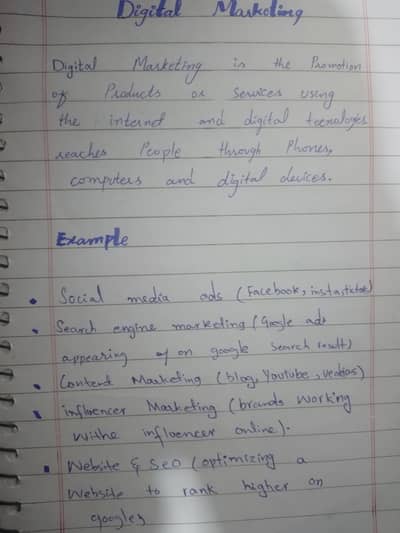 Digital Marketing
Digital Marketing is the Promotion
of Products or Services using
the internet and digital tecnologies
reaches People through Phones,
computers and digital devices.
Example
• Social media ads (Facebook, insta,tictok)
• Search engine marketing (Google ads
appearing on google Search result)
• Content Marketing (blog, Youtube, vedios)
• influencer Marketing (brands working
withe influencer online).
• Website & Seo (optimizing a
Website to rank higher on
googles